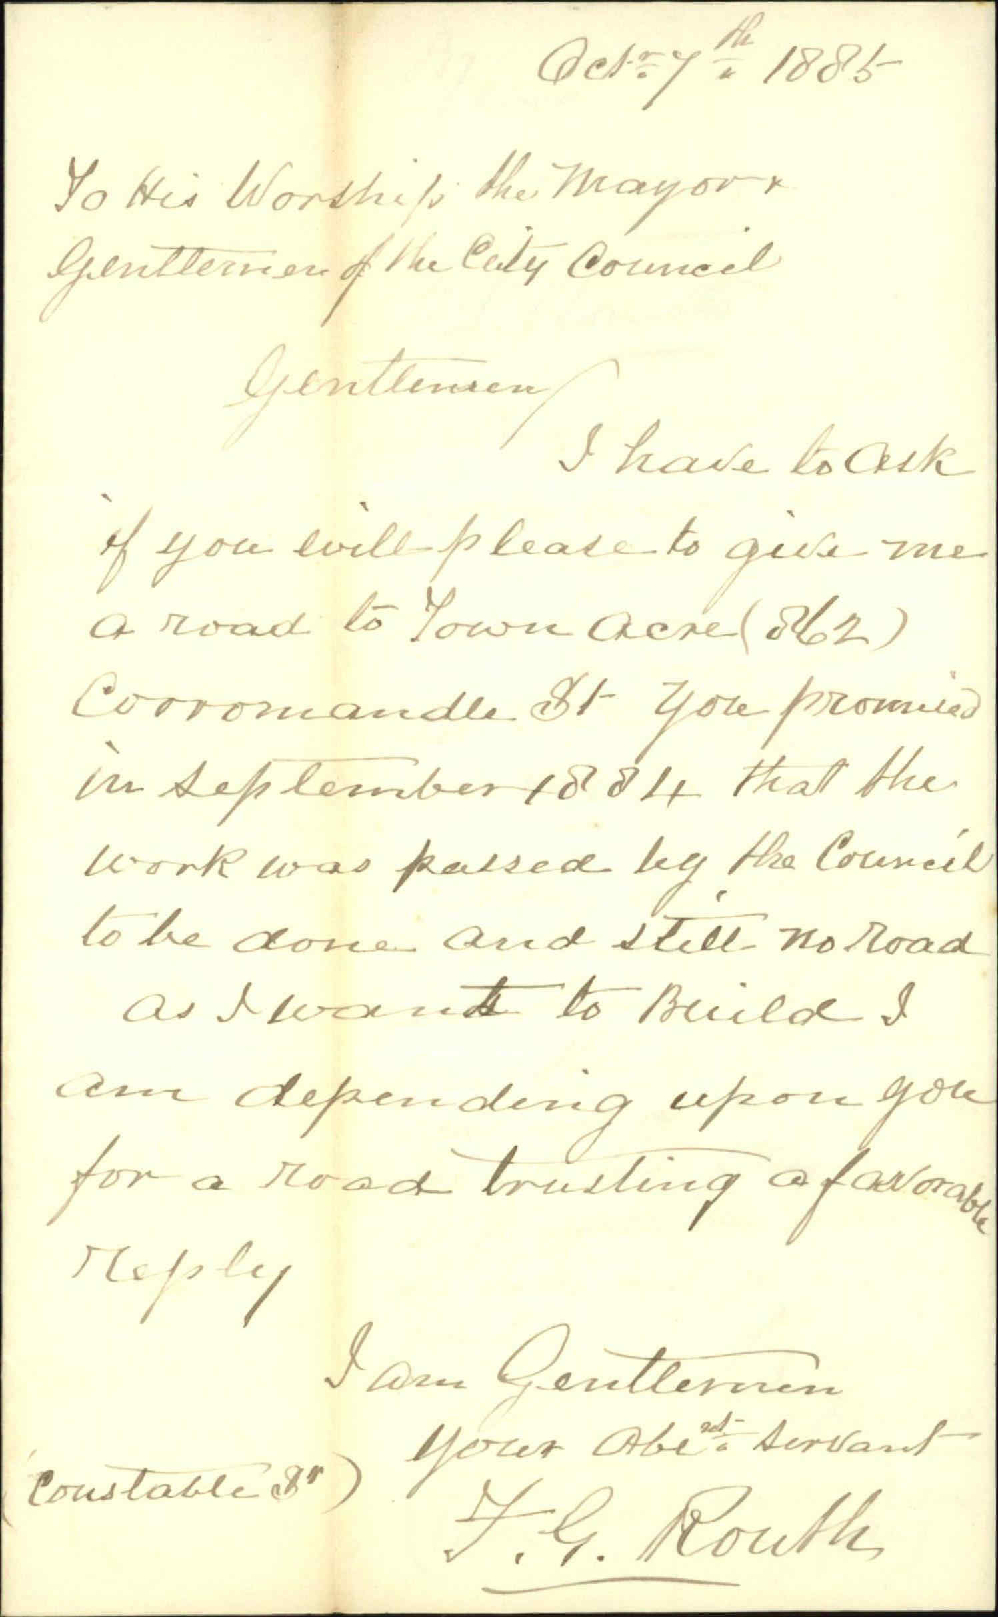 Octr 7th 1885
To His Worship the Mayor &
Gentlemen of the City Council
Gentlemen
I have to ask
if you will please to give me
a road to Town Acre (862)
Corromandle St You promised
in September 1884 that the
work was passed by the Council
to be done and still no road
as I want to Build I
am depending upon you
for a road trusting a favorable
reply
I am Gentlemen
Your Obent servant
(Constable St)
F. G. Routh